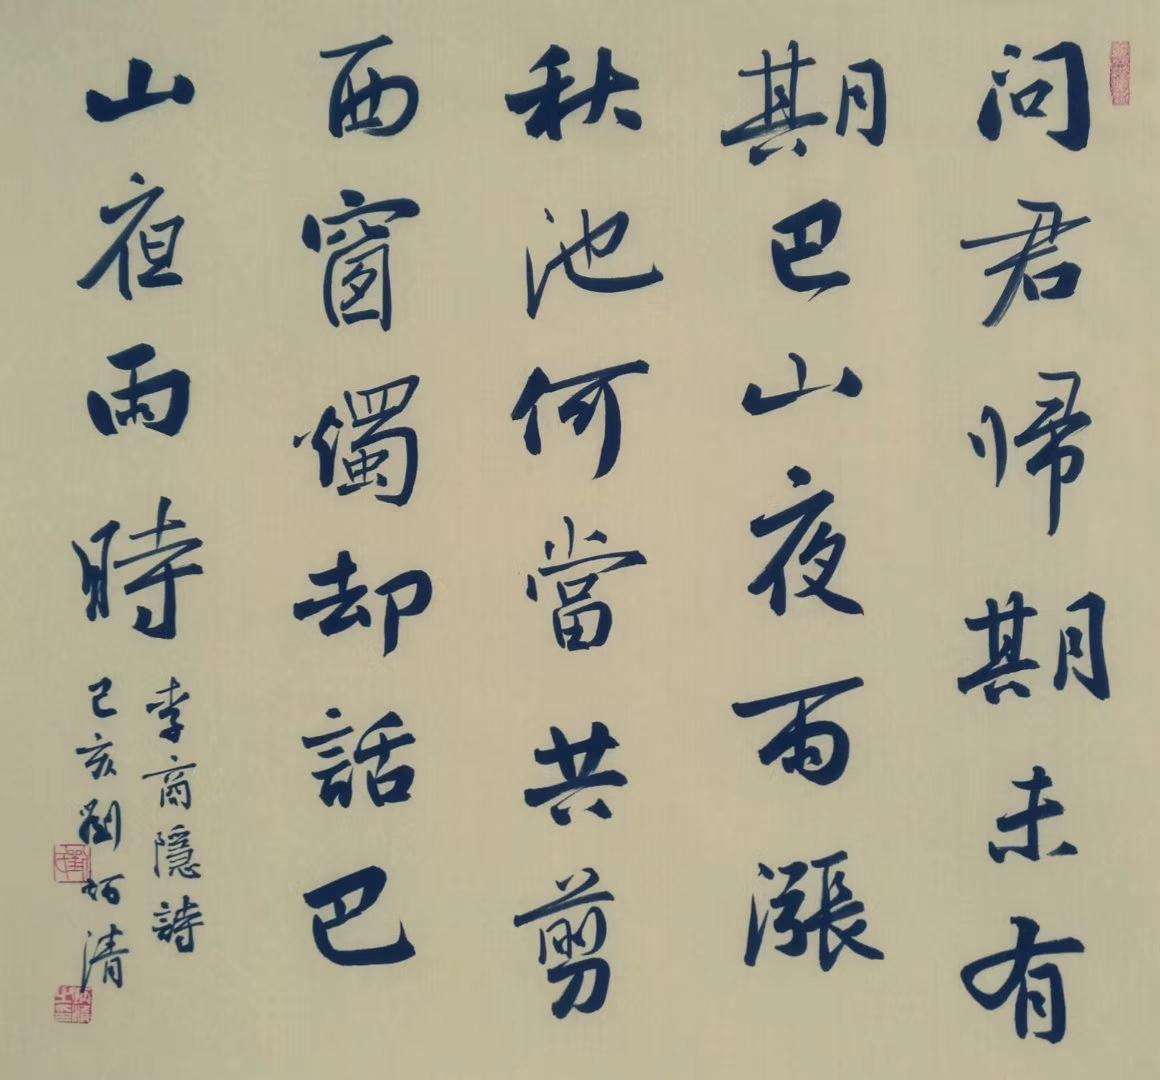 问君帰期未有
期巴山夜雨漲
秋池何當共剪
西窗燭却話巴
山夜雨時
李商隱詩
己亥劉清